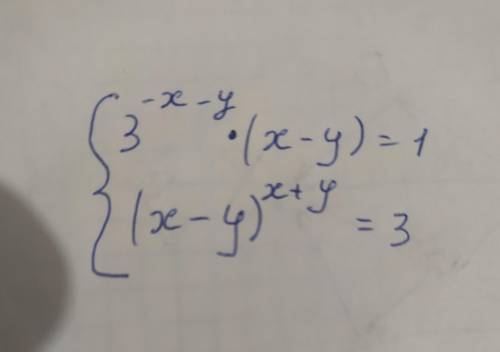 3^{-x-y} · (x-y) = 1
(x-y)^{x+y} = 3